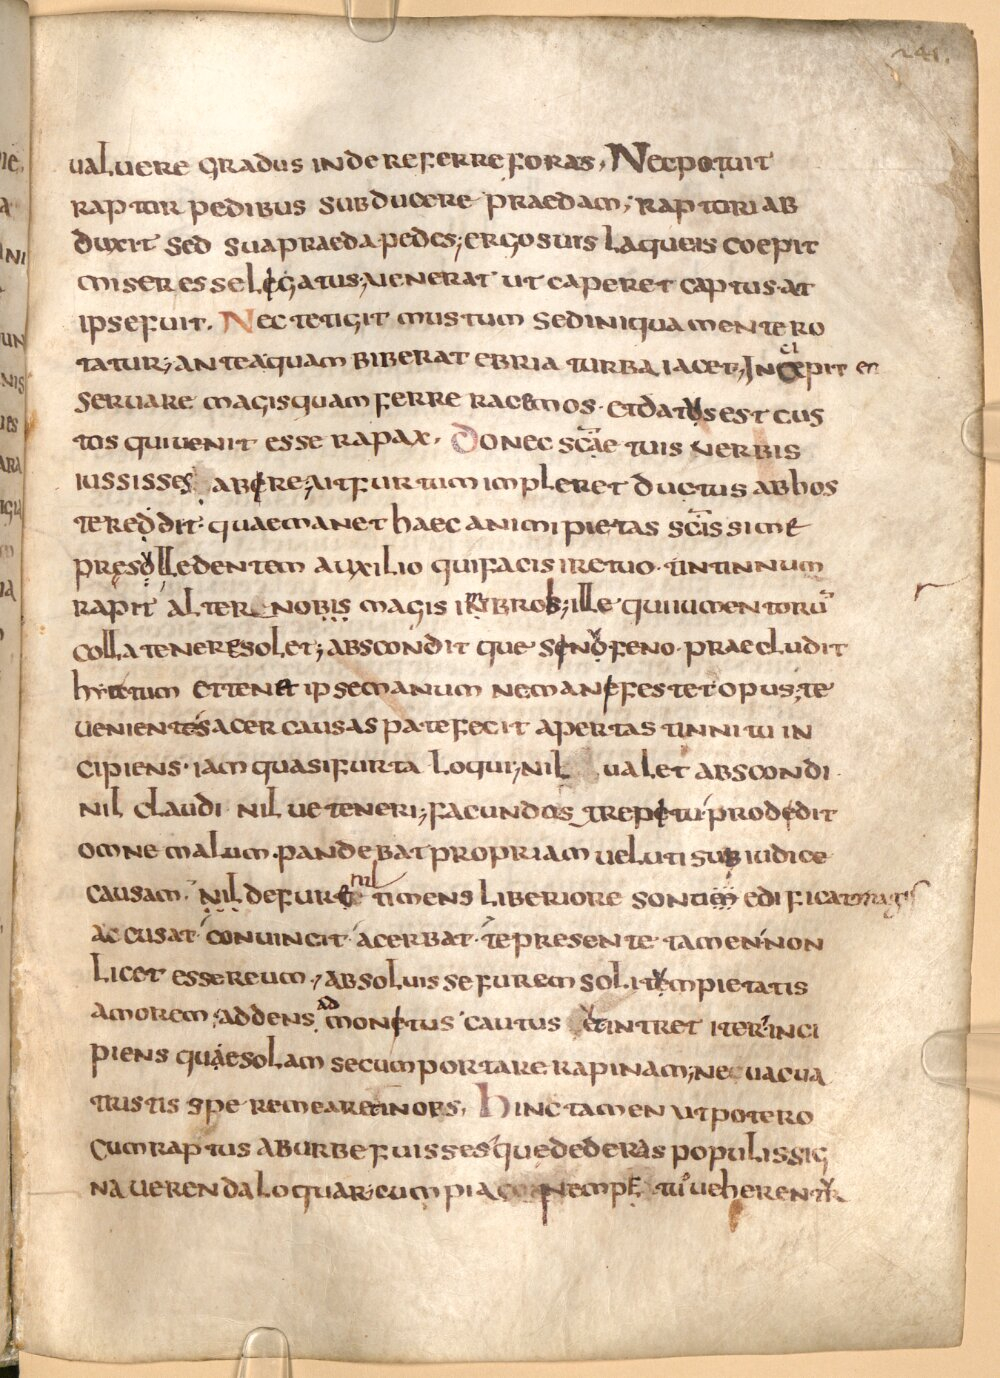 241.
ualuere gradus inde referre foras. Nec potuit
raptor pedibus subducere praedam; raptori ab
duxit sed sua praeda pedes; ergo suis laqueis coepit
miser esse legatus; uenerat ut caperet captus at
ipse fuit. Nec tetigit mustum sed iniqua mente ro
tatur; antea quam biberat ebria turba iacet; Incipit en
seruare magis quam ferre racemos. et datus est cus
tos qui uenit esse rapax. Donec scae tuis uerbis
iussisses abire; ait furtum impleret ductus ab hos
te reddit. quae manet haec animi pietas scissime
presul ledentem auxilio qui facis ire tuo. tintinnum
rapit alter nobis magis imbrob; ille qui iumentoru
colla tenere solet; abscondit que sinu feno praecludit
hytetum et tenet ipse manum ne manifestet opus; te
ueniente sacer causas patefecit apertas tinnitu in
cipiens. iam quasi furta loqui; nil ualet abscondi
nil claudi nil ue teneri; facundus trepitu prodidit
omne malum. pandebat propriam uelut sub iudice
causam. nil de fure timens liberiore sonti edificat magis
accusat conuincit acerbat. te presente tamen non
licet esse reum; absoluis se furem solitum pietatis
amorem; addens ad monitus cautus ut intret iter inci
piens quae solam secum portare rapinam; nec uacua
tristis spe remearet inobs. Hinc tamen ut potero
cum raptus ab urbe fuisses que dederas populis sig
na uerenda loquar; cum pia tempe tu ueherent